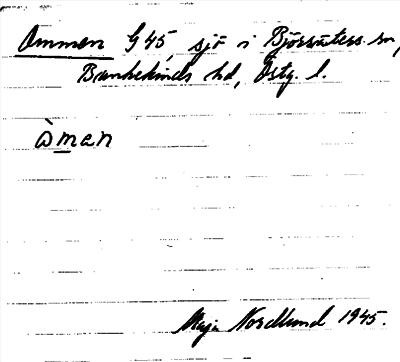 Ommen G 45, sjö i Björsäters sn,
Bankekinds hd, Östg. l.
òmen
Maja Nordlund 1945.